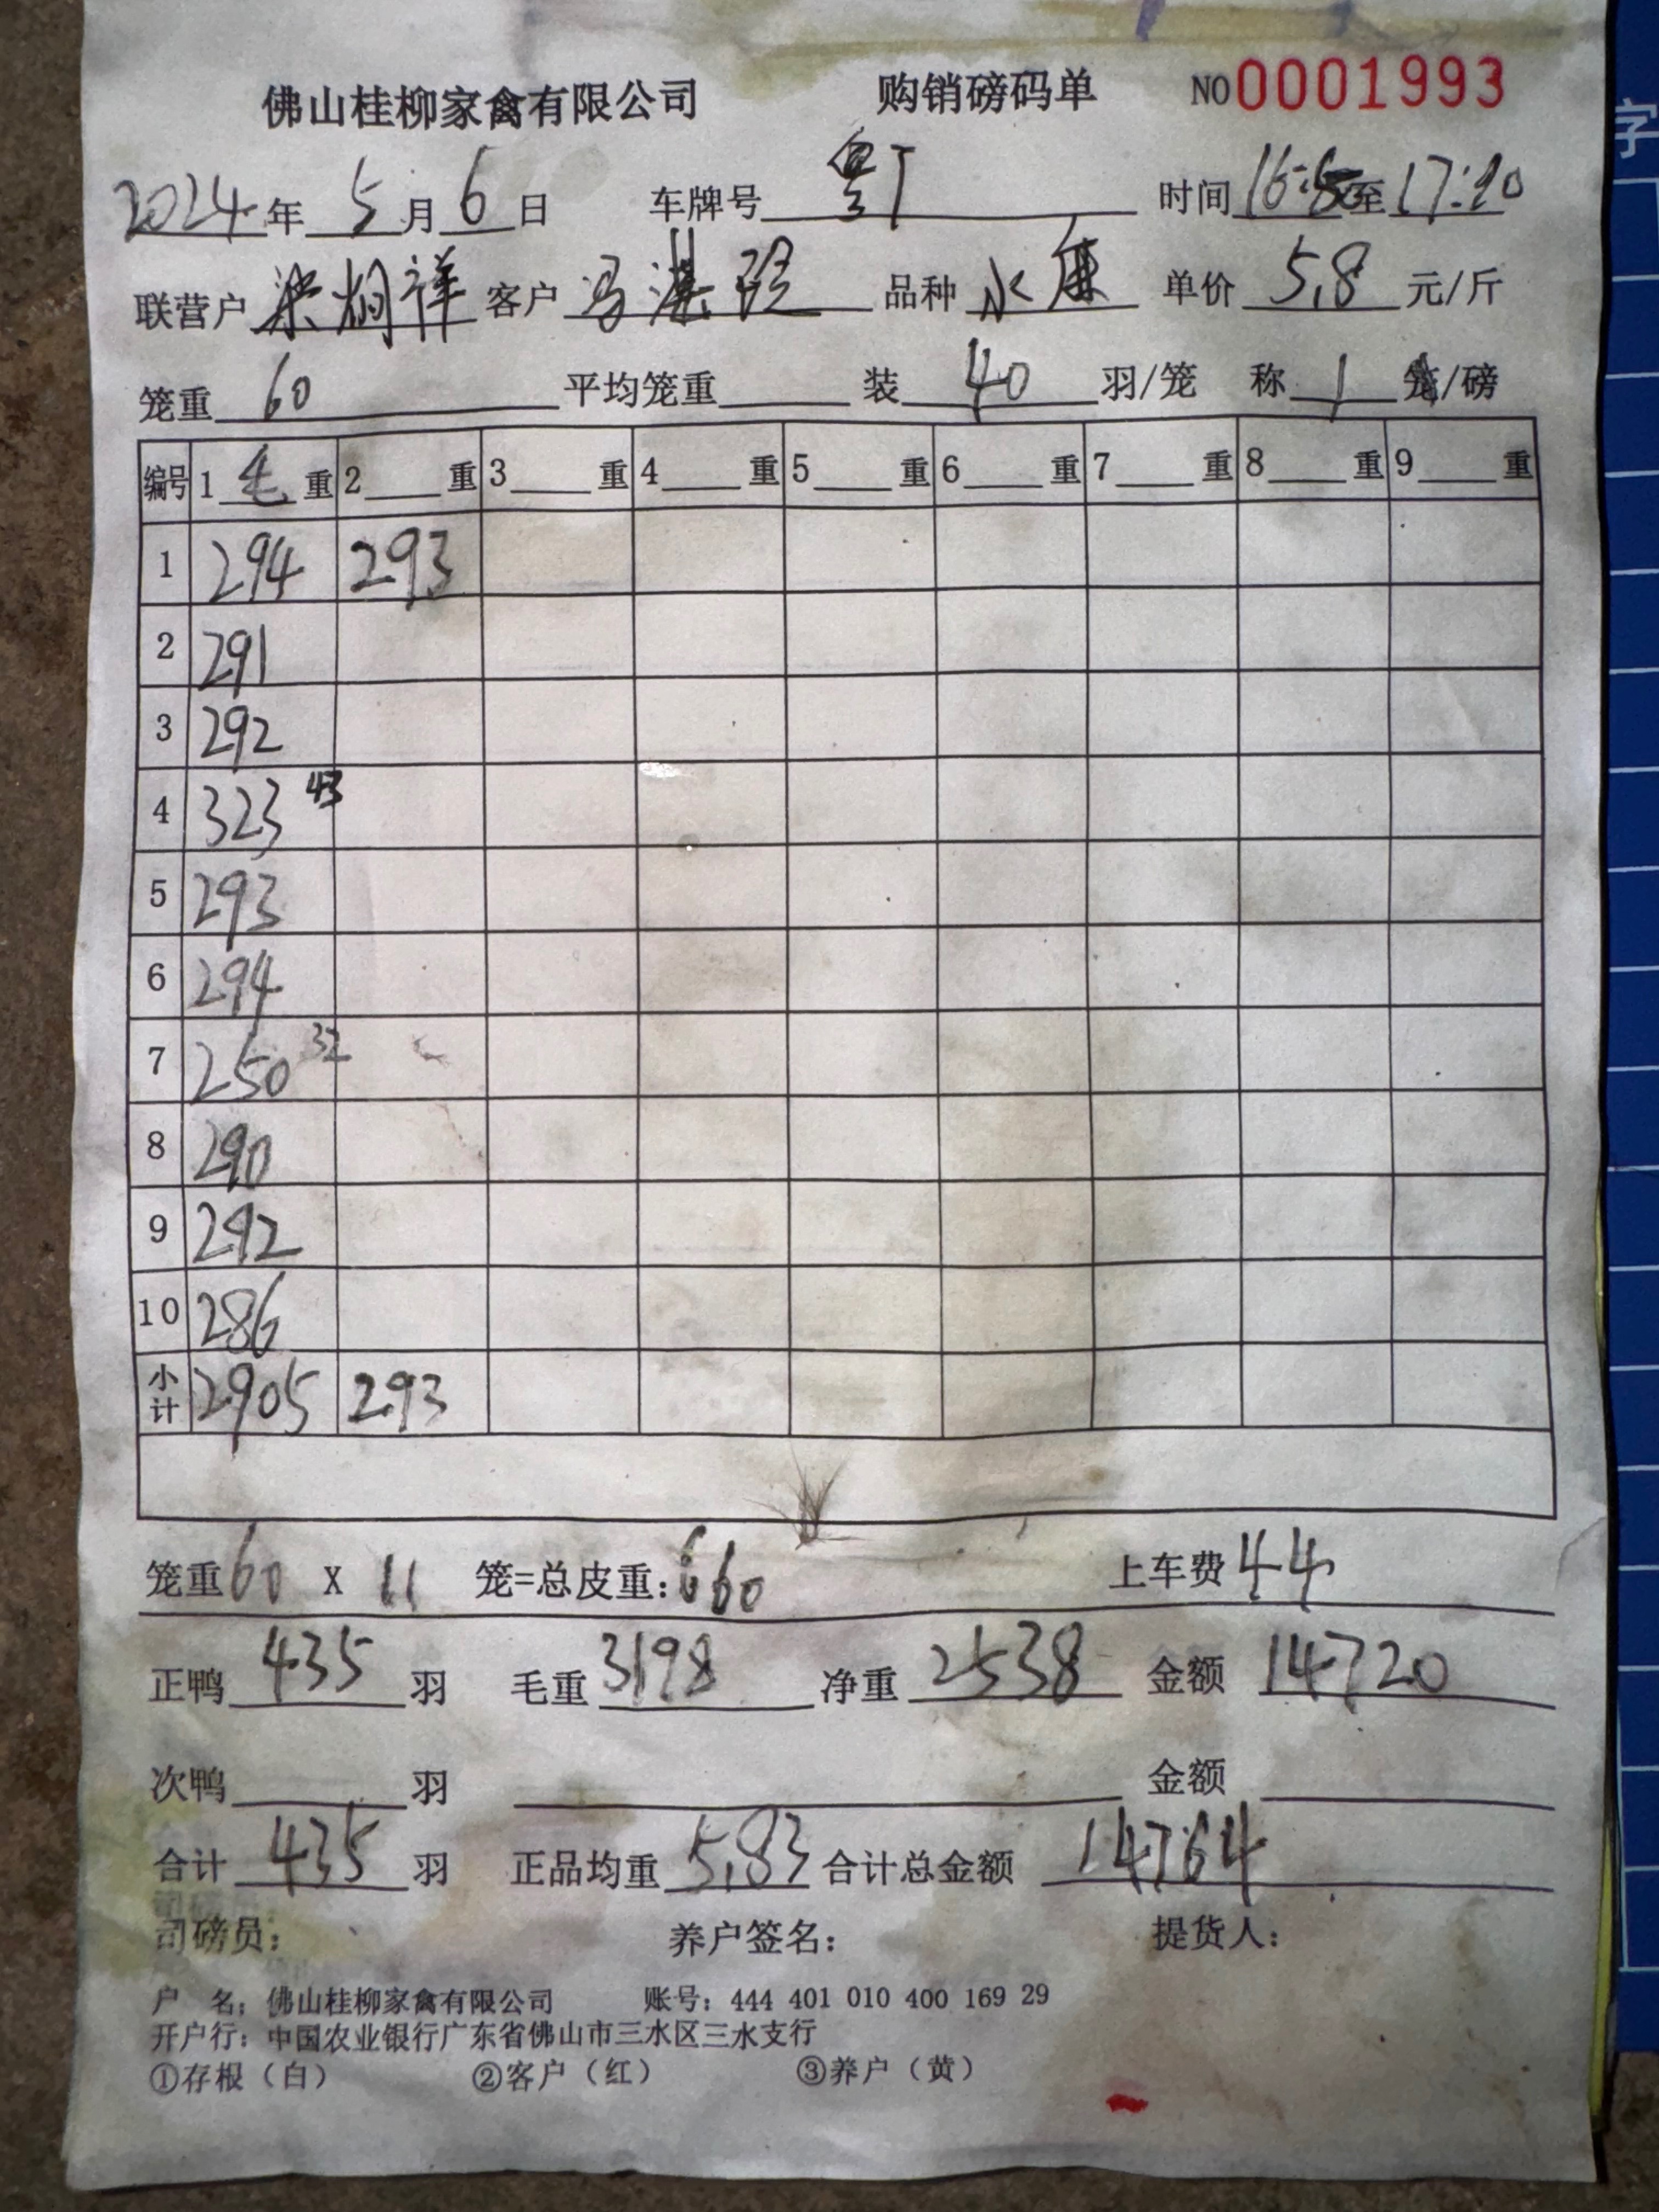 佛山桂柳家禽有限公司 购销磅码单 NO 0001993
2024年 5月 6日 车牌号 粤T 时间 至 17:20
联营户 梁炳祥 客户 冯 品种 水麻 单价 5.8 元/斤
笼重 60 平均笼重 装 40 羽/笼 称 1 笼/磅
编号 1 毛 重 2 重 3 重 4 重 5 重 6 重 7 重 8 重 9 重
1 294 293
2 291
3 292
4 323 43
5 293
6 294
7 250 32
8 290
9 292
10 286
小计 2905 293
笼重 60 X 11 笼=总皮重: 660 上车费 44
正鸭 435 羽 毛重 3198 净重 2538 金额 14720
次鸭 羽 金额
合计 435 羽 正品均重 5.83 合计总金额 14764
司磅员: 养户签名: 提货人:
户 名: 佛山桂柳家禽有限公司 账号: 444 401 010 400 169 29
开户行: 中国农业银行广东省佛山市三水区三水支行
①存根（白） ②客户（红） ③养户（黄）
字